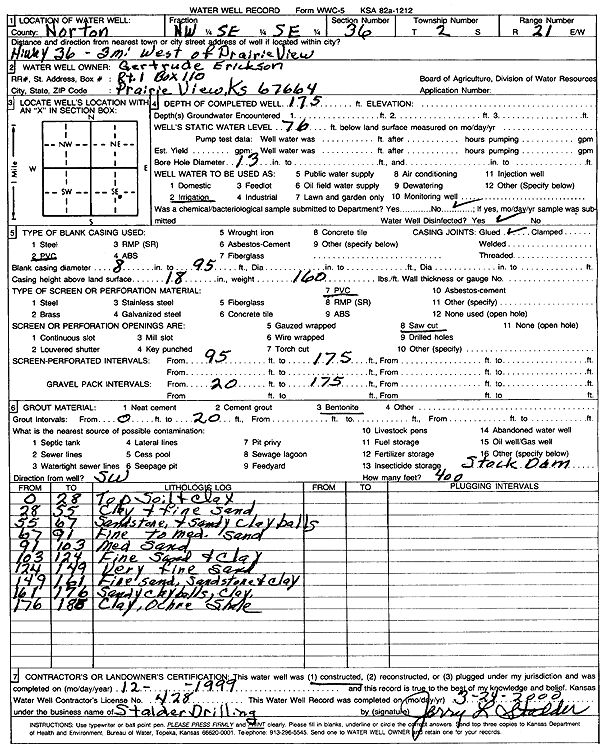 WATER WELL RECORD Form WWC-5 KSA 82a-1212
1 LOCATION OF WATER WELL: Fraction Section Number Township Number Range Number
County: Norton NW ¼ SE ¼ SE ¼ 36 T 2 S R 21 E/W
Distance and direction from nearest town or city street address of well if located within city?
Hiwky 36 - 3mi West of Prairie View
2 WATER WELL OWNER: Gertrude Erickson
RR#, St. Address, Box # : Rt. 1 Box 110 Board of Agriculture, Division of Water Resources
City, State, ZIP Code : Prairie View, Ks 67664 Application Number:
3 LOCATE WELL'S LOCATION WITH AN "X" IN SECTION BOX:
N
NW NE
W E
SW SE
S
1 Mile
4 DEPTH OF COMPLETED WELL 175 ft. ELEVATION:
Depth(s) Groundwater Encountered 1 ft. 2. ft. 3. ft.
WELL'S STATIC WATER LEVEL 76 ft. below land surface measured on mo/day/yr
Pump test data: Well water was ft. after hours pumping gpm
Est. Yield gpm: Well water was ft. after hours pumping gpm
Bore Hole Diameter 13 in. to ft., and in. to ft.
WELL WATER TO BE USED AS: 5 Public water supply 8 Air conditioning 11 Injection well
1 Domestic 3 Feedlot 6 Oil field water supply 9 Dewatering 12 Other (Specify below)
2 Irrigation 4 Industrial 7 Lawn and garden only 10 Monitoring well
Was a chemical/bacteriological sample submitted to Department? Yes No ✓; If yes, mo/day/yr sample was submitted
Water Well Disinfected? Yes ✓ No
5 TYPE OF BLANK CASING USED: 5 Wrought iron 8 Concrete tile CASING JOINTS: Glued ✓ Clamped
1 Steel 3 RMP (SR) 6 Asbestos-Cement 9 Other (specify below) Welded
2 PVC 4 ABS 7 Fiberglass Threaded
Blank casing diameter 8 in. to 95 ft., Dia in. to ft., Dia in. to ft.
Casing height above land surface 18 in., weight 160 lbs./ft. Wall thickness or gauge No.
TYPE OF SCREEN OR PERFORATION MATERIAL: 7 PVC 10 Asbestos-cement
1 Steel 3 Stainless steel 5 Fiberglass 8 RMP (SR) 11 Other (specify)
2 Brass 4 Galvanized steel 6 Concrete tile 9 ABS 12 None used (open hole)
SCREEN OR PERFORATION OPENINGS ARE: 5 Gauzed wrapped 8 Saw cut 11 None (open hole)
1 Continuous slot 3 Mill slot 6 Wire wrapped 9 Drilled holes
2 Louvered shutter 4 Key punched 7 Torch cut 10 Other (specify)
SCREEN-PERFORATED INTERVALS: From 95 ft. to 175 ft., From ft. to ft.
From ft. to ft., From ft. to ft.
GRAVEL PACK INTERVALS: From 20 ft. to 175 ft., From ft. to ft.
From ft. to ft., From ft. to ft.
6 GROUT MATERIAL: 1 Neat cement 2 Cement grout 3 Bentonite 4 Other
Grout Intervals: From 0 ft. to 20 ft., From ft. to ft., From ft. to ft.
What is the nearest source of possible contamination: 10 Livestock pens 14 Abandoned water well
1 Septic tank 4 Lateral lines 7 Pit privy 11 Fuel storage 15 Oil well/Gas well
2 Sewer lines 5 Cess pool 8 Sewage lagoon 12 Fertilizer storage 16 Other (specify below)
3 Watertight sewer lines 6 Seepage pit 9 Feedyard 13 Insecticide storage Stock Dam
Direction from well? SW How many feet? 400
FROM TO LITHOLOGIC LOG FROM TO PLUGGING INTERVALS
0 28 Top Soil & Clay
28 55 Clay & fine Sand
55 67 Sandstone, & Sandy Clay balls
67 91 Fine to med. sand
91 103 Med Sand
103 124 Fine Sand & Clay
124 149 Very fine Sand
149 161 Fine sand, Sandstone & clay
161 176 Sandy clay balls, Clay,
176 185 Clay, Ochre Shale
7 CONTRACTOR'S OR LANDOWNER'S CERTIFICATION: This water well was (1) constructed, (2) reconstructed, or (3) plugged under my jurisdiction and was
completed on (mo/day/year) 12- -1999 and this record is true to the best of my knowledge and belief. Kansas
Water Well Contractor's License No. 428 This Water Well Record was completed on (mo/day/yr) 3-24-2000
under the business name of Stalder Drilling by (signature) Jerry Stalder
INSTRUCTIONS: Use typewriter or ball point pen. PLEASE PRESS FIRMLY and PRINT clearly. Please fill in blanks, underline or circle the correct answers. Send top three copies to Kansas Department
of Health and Environment, Bureau of Water, Topeka, Kansas 66620-0001. Telephone: 913-296-5545. Send one to WATER WELL OWNER and retain one for your records.